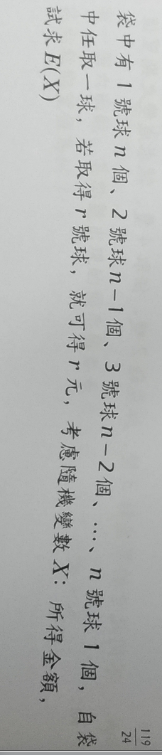 119
24
袋中有 1 號球 n 個、2 號球 n－1 個、3 號球 n－2 個、…、n 號球 1 個，自袋
中任取一球，若取得 r 號球，就可得 r 元，考慮隨機變數 X：所得金額，
試求 E(X)